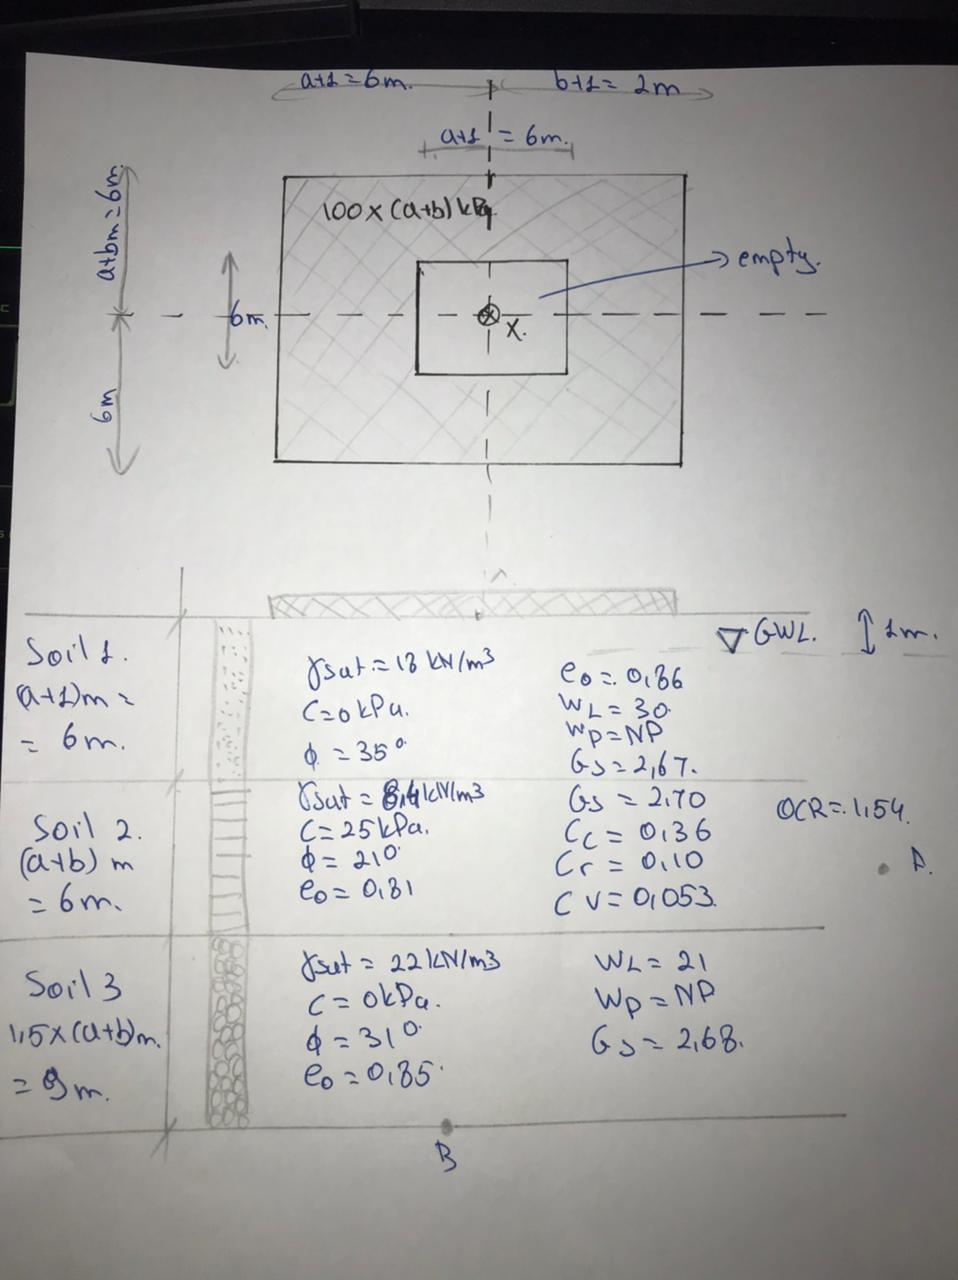 a+1=6m.
b+1= 2m
a+1 = 6m.
a+bm=6m.
100x(a+b)kPa
empty.
6m.
X.
6m
Soil 1.
(a+1)m =
= 6m.
γsat = 18 kN/m3
C=0kPa.
ϕ = 35°
e0 = 0,86
WL = 30.
Wp=NP
Gs=2,67.
GWL.
1m.
Soil 2.
(a+b) m
= 6m.
C=25kPa.
ϕ = 21°
e0 = 0,81
Gs = 2,70
Cc = 0,36
Cr = 0,10
CV = 0,053.
OCR = 1,54.
A.
Soil 3
1,5x(a+b)m.
= 9m.
γsat = 22kN/m3
C = 0kPa.
ϕ = 31°
e0 = 0,85.
WL = 21
Wp = NP
Gs = 2,68.
B